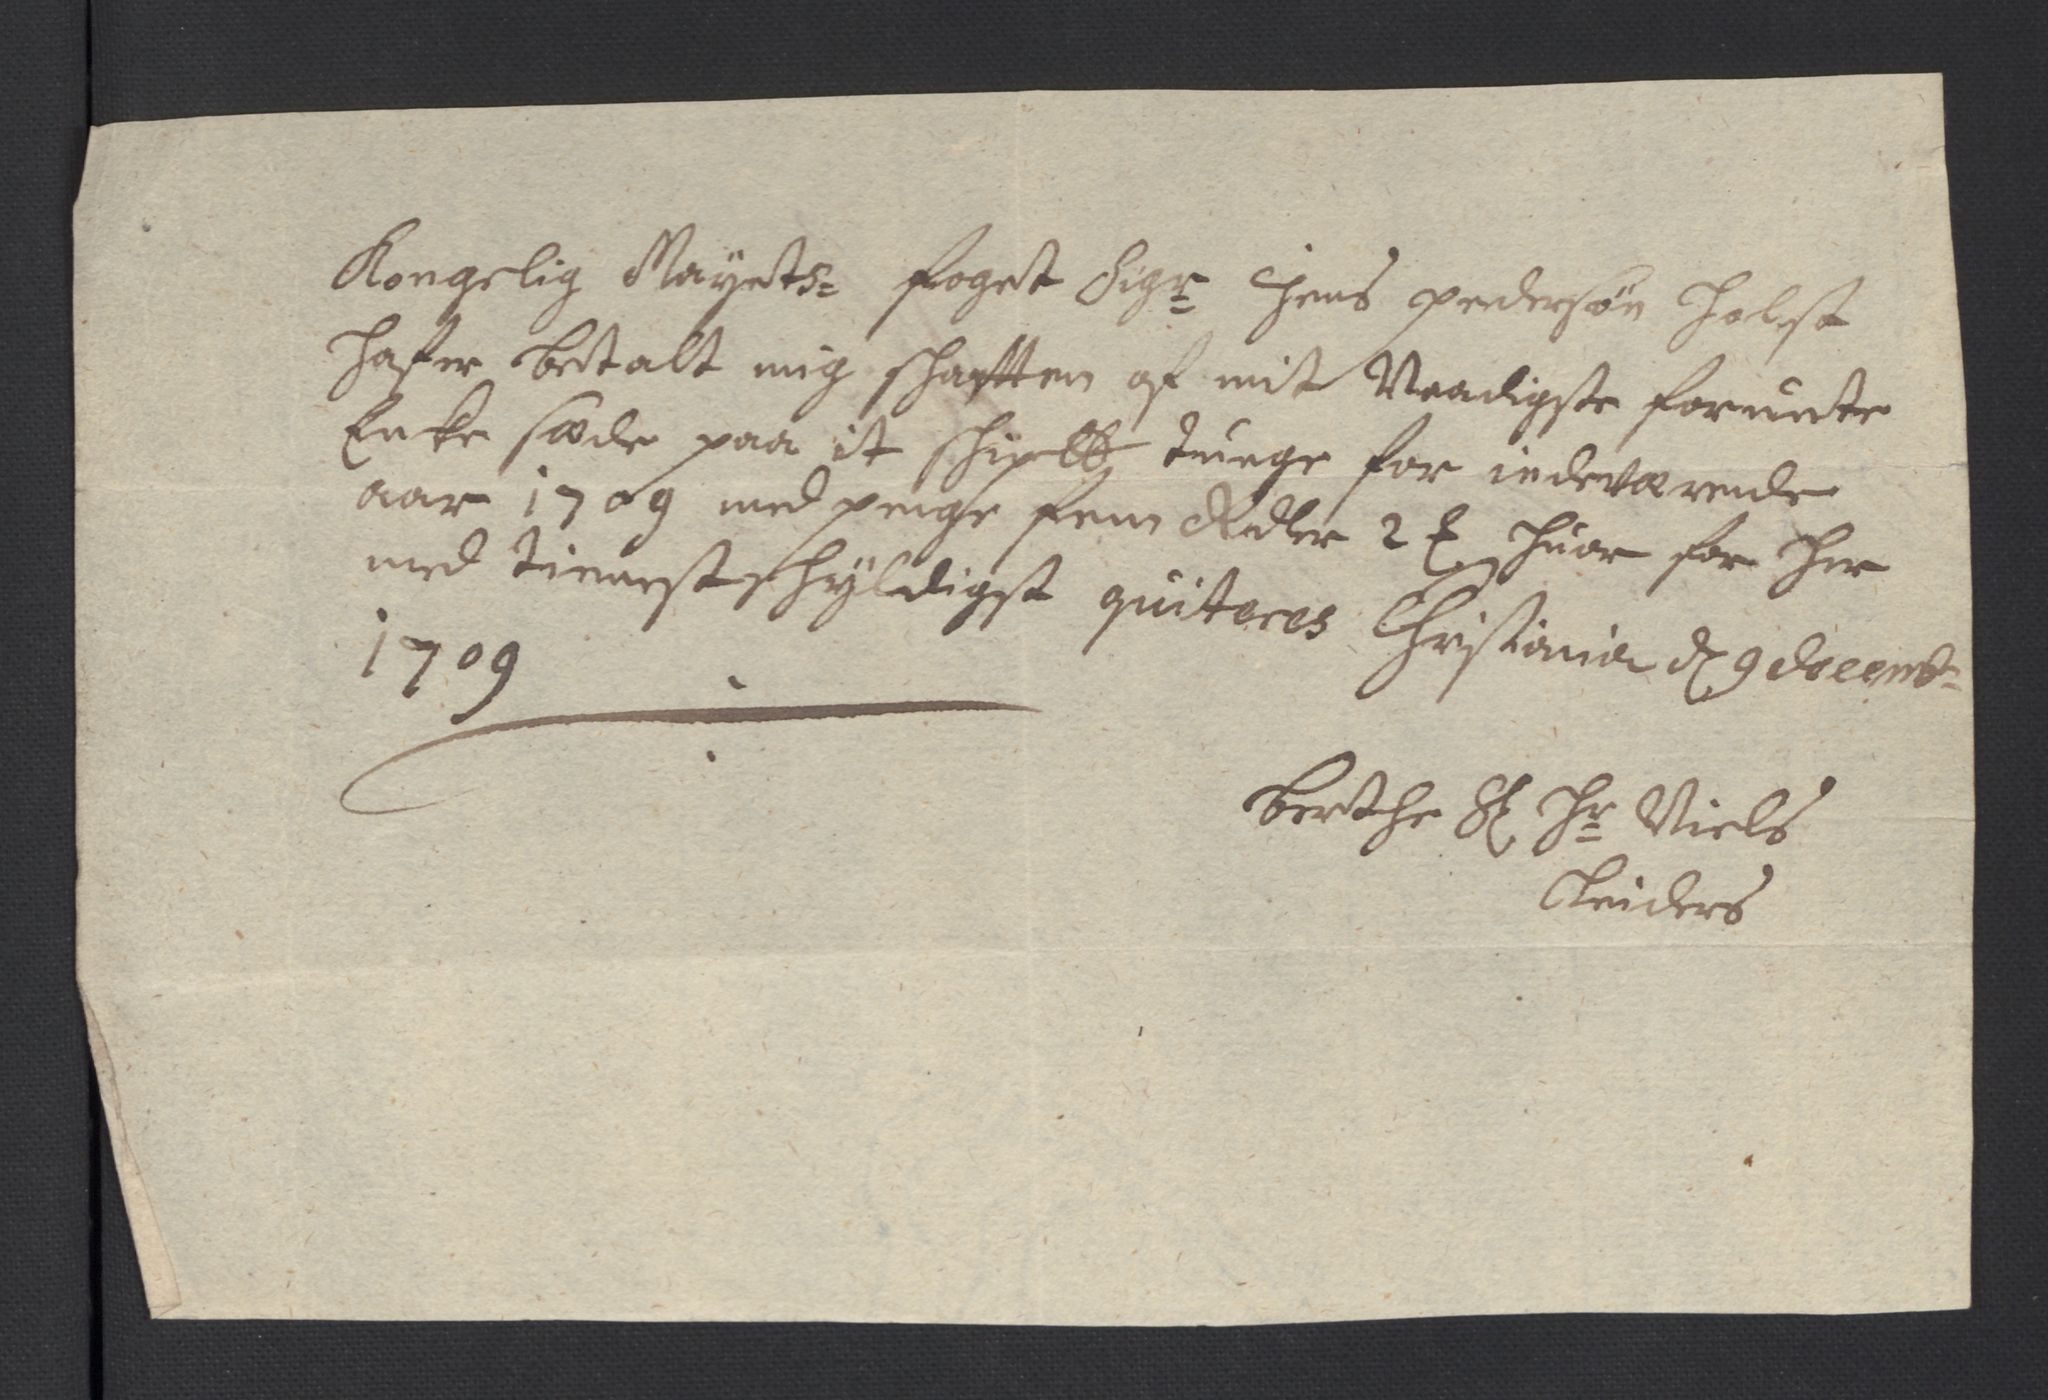 Kongelig Mayets: foget Sigr Jens pedersøn Holst
hafer betalt mig schatten af mit Naadigste forunte
Enke sæde paa it schip℔ tunge for indeværende
aar 1709 med penge fem Rdler 2 huor for her
med tienestschyldigst quiteres Christania d 9 decemb:
1709
Berthe Sl Hr Niels